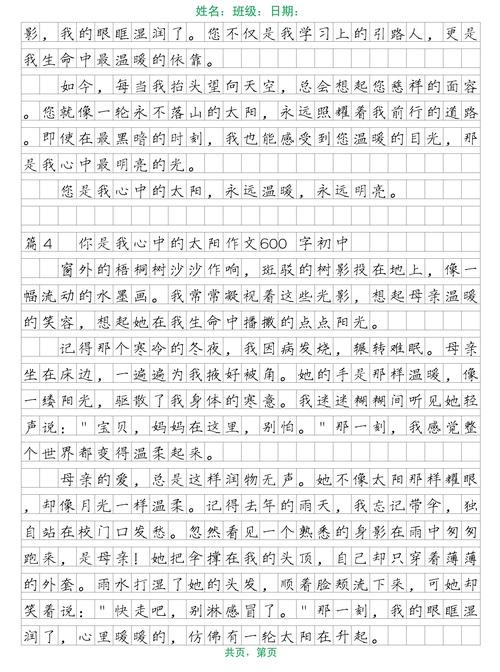 姓名：班级：日期：
影，我的眼眶湿润了。您不仅是我学习上的引路人，更是
我生命中最温暖的依靠。
如今，每当我抬头望向天空，总会想起您慈祥的面容
。您就像一轮永不落山的太阳，永远照耀着我前行的道路
。即使在最黑暗的时刻，我也能感受到您温暖的目光，那
是我心中最明亮的光。
您是我心中的太阳，永远温暖，永远明亮。
篇4 你是我心中的太阳作文600 字初中
窗外的梧桐树沙沙作响，斑驳的树影投在地上，像一
幅流动的水墨画。我常常凝视着这些光影，想起母亲温暖
的笑容，想起她在我生命中播撒的点点阳光。
记得那个寒冷的冬夜，我因病发烧，辗转难眠。母亲
坐在床边，一遍遍为我掖好被角。她的手是那样温暖，像
一缕阳光，驱散了我身体的寒意。我迷迷糊糊间听见她轻
声说："宝贝，妈妈在这里，别怕。"那一刻，我感觉整
个世界都变得温柔起来。
母亲的爱，总是这样润物无声。她不像太阳那样耀眼
，却像月光一样温柔。记得去年的雨天，我忘记带伞，独
自站在校门口发愁。忽然看见一个熟悉的身影在雨中匆匆
跑来，是母亲！她把伞撑在我的头顶，自己却只穿着薄薄
的外套。雨水打湿了她的头发，顺着脸颊流下来，可她却
笑着说："快走吧，别淋感冒了。"那一刻，我的眼眶湿
润了，心里暖暖的，仿佛有一轮太阳在升起。
共页，第页